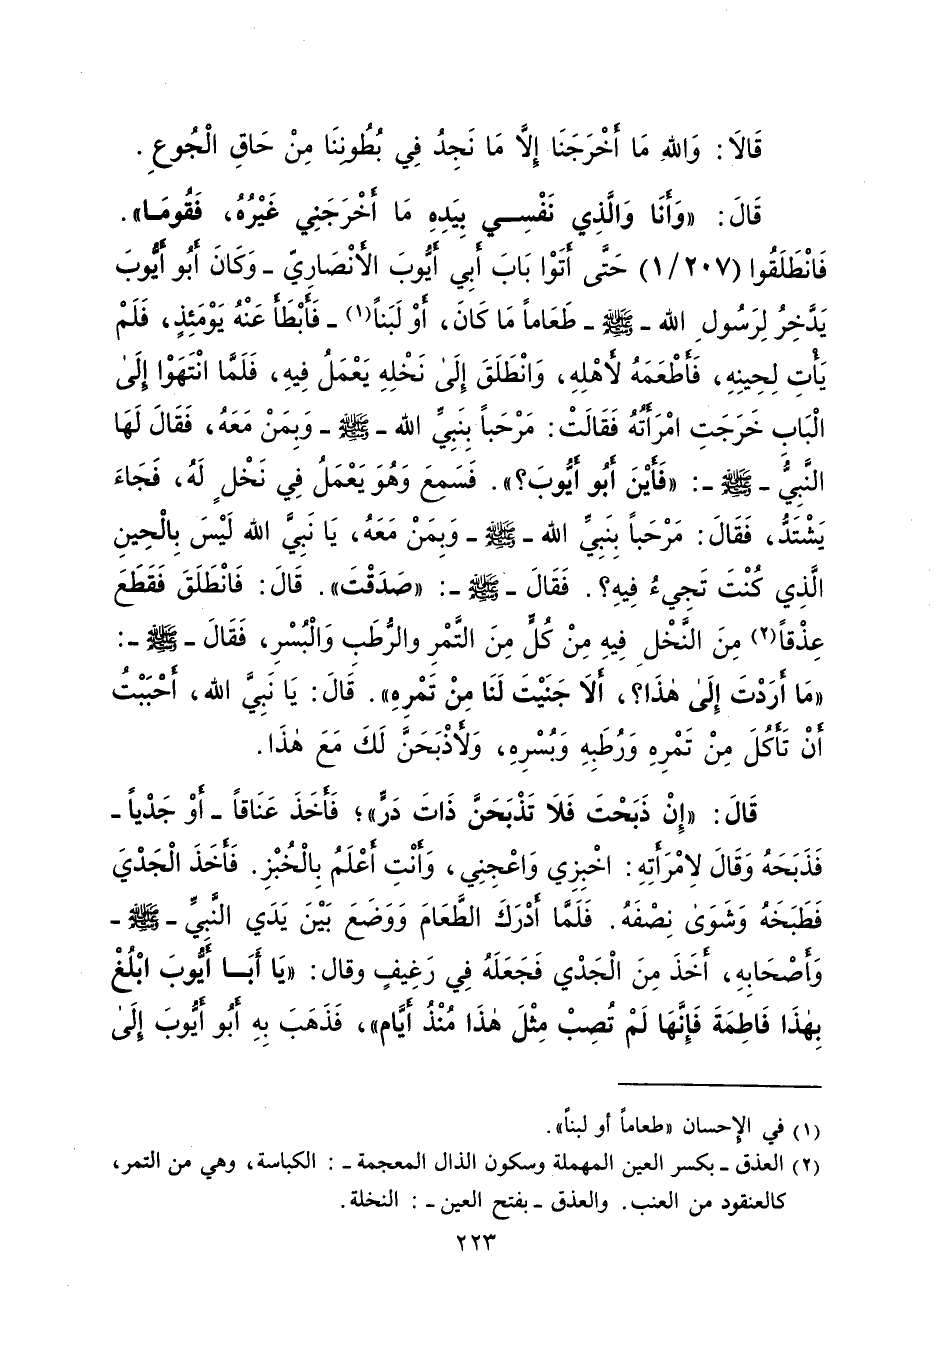 قَالَا: وَاللهِ مَا أَخْرَجَنَا إِلَّا مَا نَجِدُ فِي بُطُونِنَا مِنْ حَاقِ الْجُوعِ.
قَالَ: «وَأَنَا وَالَّذِي نَفْسِي بِيَدِهِ مَا أَخْرَجَنِي غَيْرُهُ، فَقُومَا».
فَانْطَلَقُوا (١/٢٠٧) حَتَّى أَتَوْا بَابَ أَبِي أَيُّوبَ الأَنْصَارِيّ ـ وَكَانَ أَبُو أَيُّوبَ
يَدَّخِرُ لِرَسُولِ اللهِ ـ ﷺ ـ طَعَاماً مَا كَانَ، أَوْ لَبَناً(١) ـ فَأَبْطَأَ عَنْهُ يَوْمَئِذٍ، فَلَمْ
يَأْتِ لِحِينِهِ، فَأَطْعَمَهُ لأَهْلِهِ، وَانْطَلَقَ إِلَىٰ نَخْلِهِ يَعْمَلُ فِيهِ، فَلَمَّا انْتَهَوْا إِلَىٰ
الْبَابِ خَرَجَتِ امْرَأَتُهُ فَقَالَتْ: مَرْحَباً بِنَبِيِّ اللهِ ـ ﷺ ـ وَبِمَنْ مَعَهُ، فَقَالَ لَهَا
النَّبِيُّ ـ ﷺ ـ: «فَأَيْنَ أَبُو أَيُّوبَ؟». فَسَمِعَ وَهُوَ يَعْمَلُ فِي نَخْلٍ لَهُ، فَجَاءَ
يَشْتَدُّ، فَقَالَ: مَرْحَباً بِنَبِيِّ اللهِ ـ ﷺ ـ وَبِمَنْ مَعَهُ، يَا نَبِيَّ اللهِ لَيْسَ بِالْحِينِ
الَّذِي كُنْتَ تَجِيءُ فِيهِ؟. فَقَالَ ـ ﷺ ـ: «صَدَقْتَ». قَالَ: فَانْطَلَقَ فَقَطَعَ
عِذْقاً(٢) مِنَ النَّخْلِ فِيهِ مِنْ كُلٍّ مِنَ التَّمْرِ والرُّطَبِ وَالْبُسْرِ، فَقَالَ ـ ﷺ ـ:
«مَا أَرَدْتَ إِلَىٰ هٰذَا؟، أَلَا جَنَيْتَ لَنَا مِنْ تَمْرِهِ». قَالَ: يَا نَبِيَّ اللهِ، أَحْبَبْتُ
أَنْ تَأْكُلَ مِنْ تَمْرِهِ وَرُطَبِهِ وَبُسْرِهِ، وَلأَذْبَحَنَّ لَكَ مَعَ هٰذَا.
قَالَ: «إِنْ ذَبَحْتَ فَلَا تَذْبَحَنَّ ذَاتَ دَرٍّ»؛ فَأَخَذَ عَنَاقاً ـ أَوْ جَدْياً ـ
فَذَبَحَهُ وَقَالَ لِامْرَأَتِهِ: اخْبِزِي وَاعْجِنِي، وَأَنْتِ أَعْلَمُ بِالْخُبْزِ. فَأَخَذَ الْجَدْيَ
فَطَبَخَهُ وَشَوَىٰ نِصْفَهُ. فَلَمَّا أَدْرَكَ الطَّعَامَ وَوَضَعَ بَيْنَ يَدَيِ النَّبِيِّ ـ ﷺ ـ
وَأَصْحَابِهِ، أَخَذَ مِنَ الْجَدْيِ فَجَعَلَهُ فِي رَغِيفٍ وقال: «يَا أَبَا أَيُّوبَ ابْلُغْ
بِهٰذَا فَاطِمَةَ فَإِنَّهَا لَمْ تُصِبْ مِثْلَ هٰذَا مُنْذُ أَيَّامٍ»، فَذَهَبَ بِهِ أَبُو أَيُّوبَ إِلَىٰ
(١) في الإحسان «طعاماً أو لبناً».
(٢) العذق ـ بكسر العين المهملة وسكون الذال المعجمة ـ : الكباسة، وهي من التمر،
كالعنقود من العنب. والعذق ـ بفتح العين ـ : النخلة.
٢٢٣